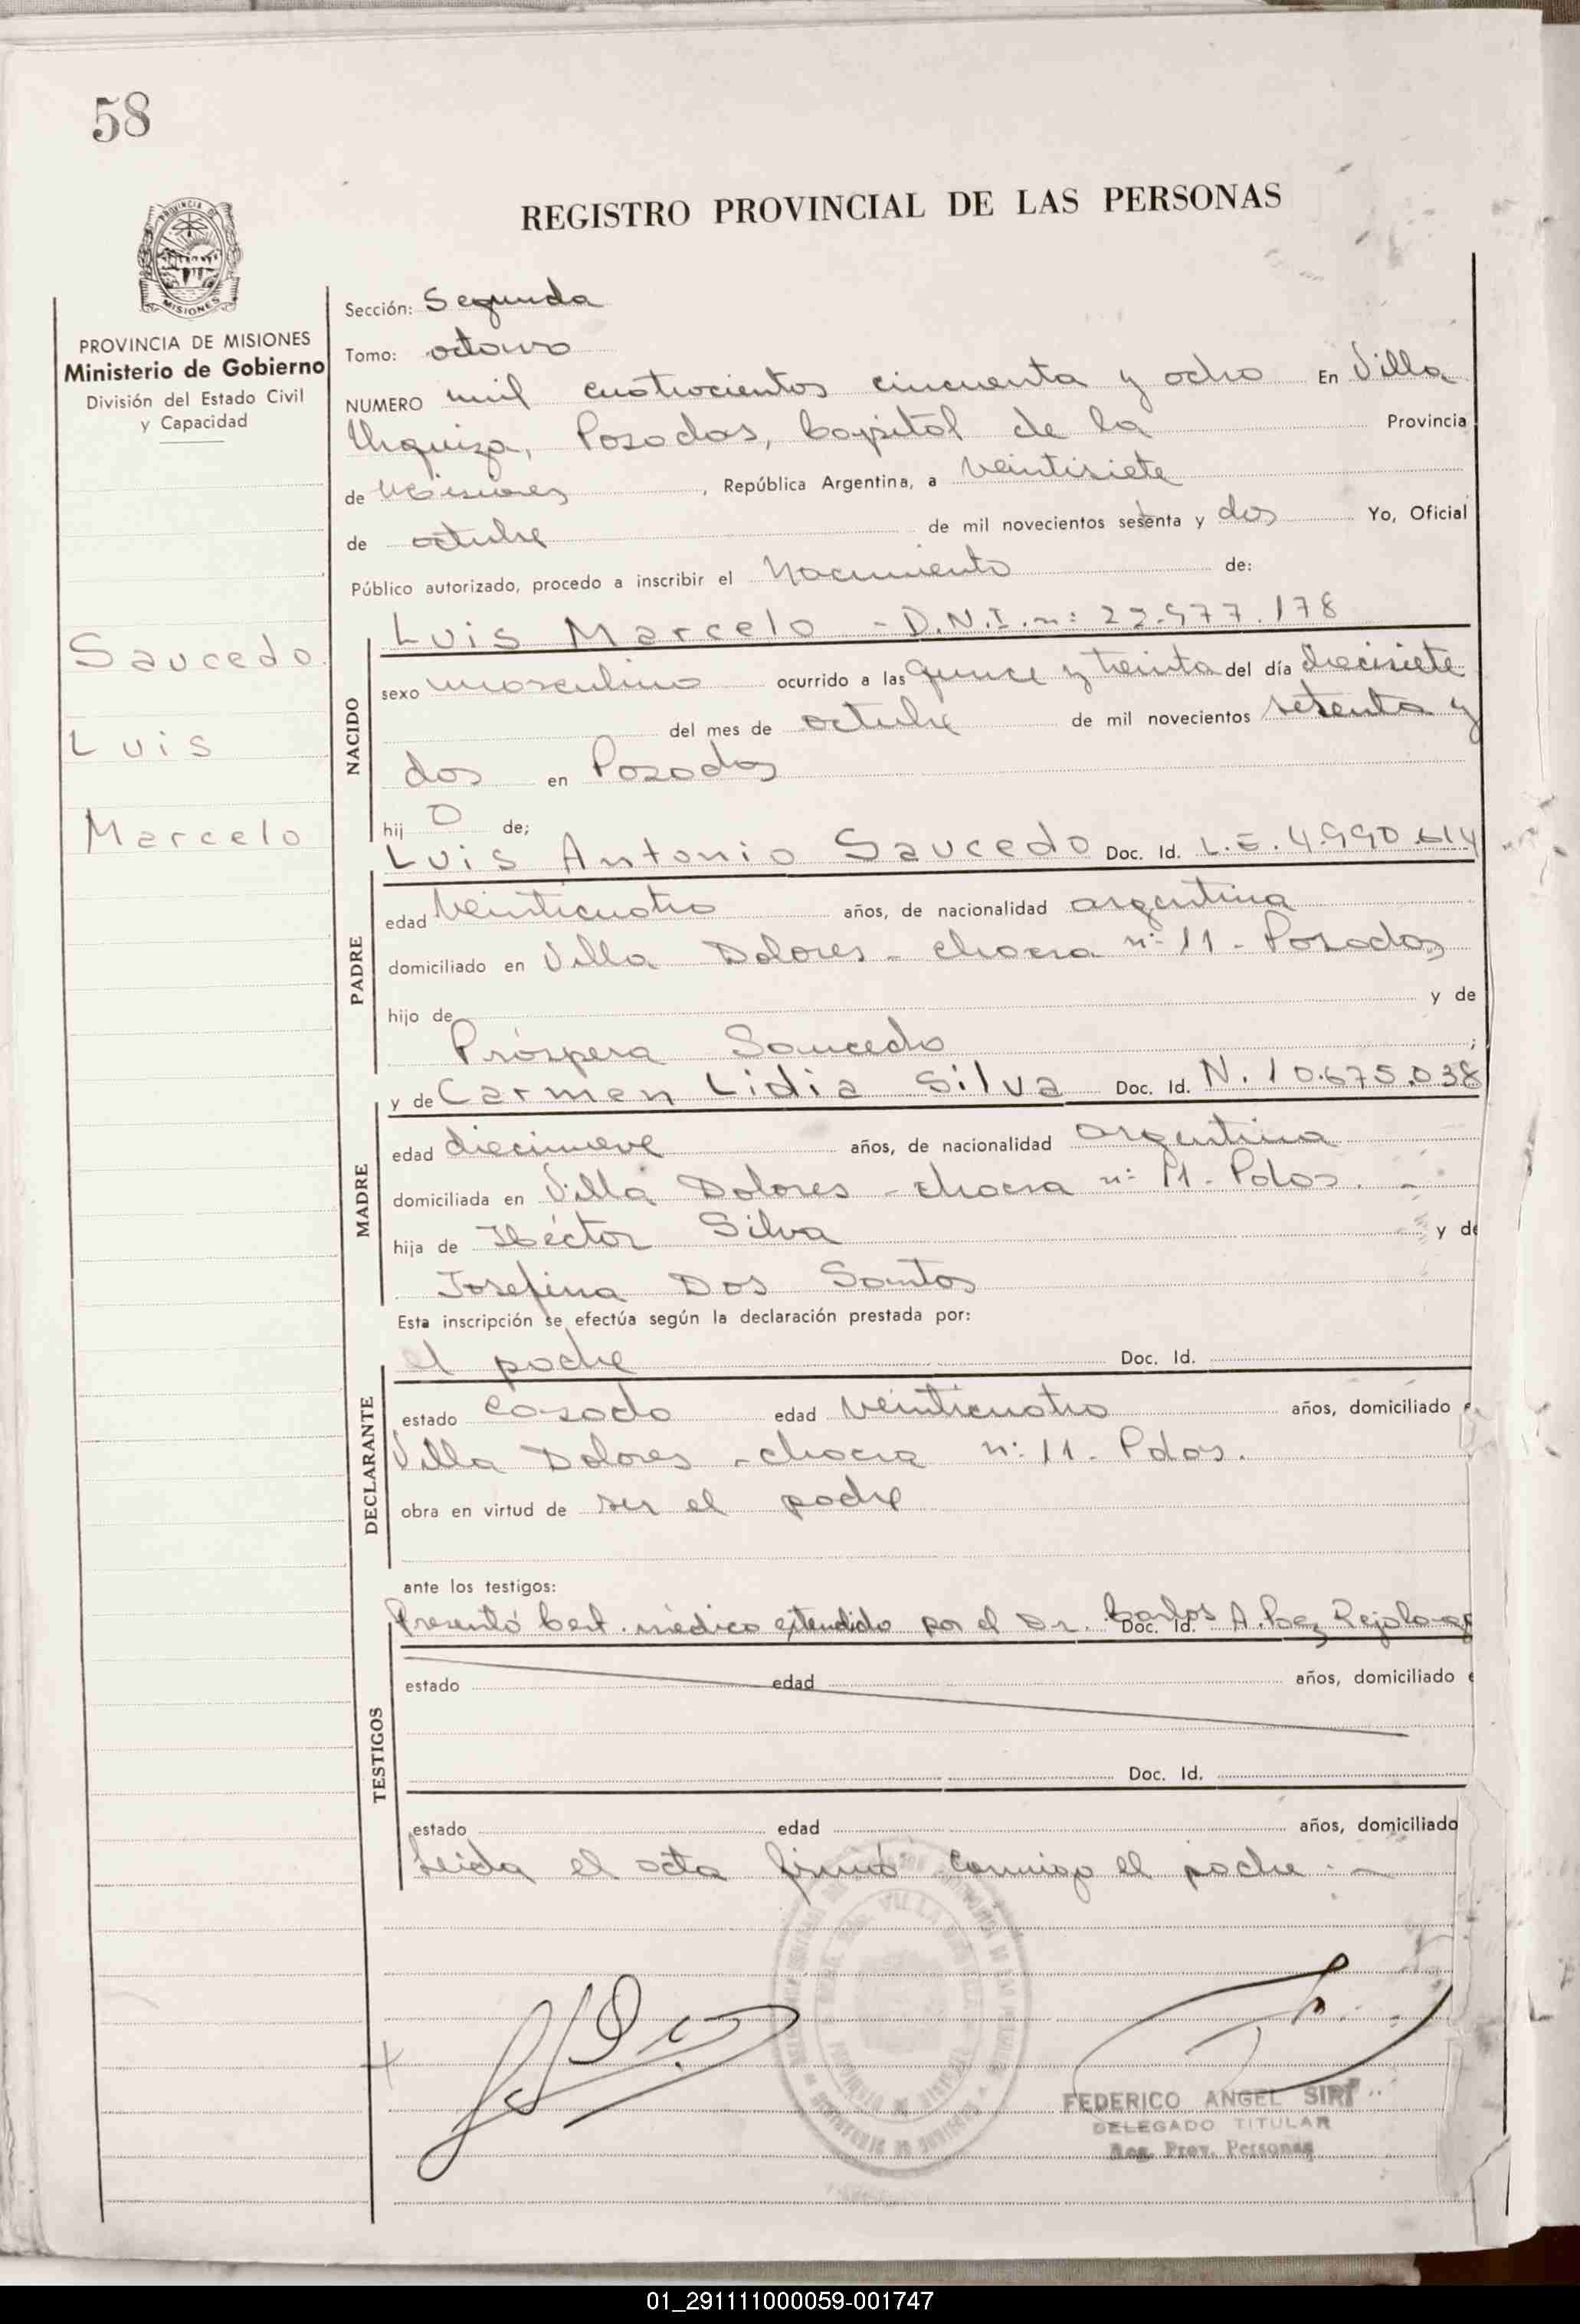 58
REGISTRO PROVINCIAL DE LAS PERSONAS
PROVINCIA DE
MISIONES
PROVINCIA DE MISIONES
Ministerio de Gobierno
División del Estado Civil
y Capacidad
Saucedo
Luis
Marcelo
Sección: Segunda
Tomo: octavo
NUMERO mil cuatrocientos cincuenta y ocho En Villa
Urquiza, Posadas, Capital de la Provincia
de Misiones, República Argentina, a veintisiete
de octubre de mil novecientos setenta y dos Yo, Oficial
Público autorizado, procedo a inscribir el Nacimiento de:
NACIDO
Luis Marcelo - D.N.I. n: 22.977.178
sexo masculino ocurrido a las quince y treinta del día diecisiete
del mes de octubre de mil novecientos setenta y
dos en Posadas
hij o de;
PADRE
Luis Antonio Saucedo Doc. Id. L.E. 4.990.614
edad veinticuatro años, de nacionalidad argentina
domiciliado en Villa Dolores - chacra n: 11 - Posadas
hijo de y de
Próspera Saucedo ;
MADRE
y de Carmen Lidia Silva Doc. Id. N. 10.675.038
edad diecinueve años, de nacionalidad argentina
domiciliada en Villa Dolores - chacra n: 11 - Pdas. -
hija de Héctor Silva y de
Josefina Dos Santos
Esta inscripción se efectúa según la declaración prestada por:
DECLARANTE
el padre Doc. Id.
estado casado edad veinticuatro años, domiciliado
Villa Dolores - chacra n: 11 - Pdas.
obra en virtud de ser el padre
ante los testigos:
TESTIGOS
Presentó Cert. médico extendido por el Dr. Carlos Doc. Id. A. Paez
estado edad años, domiciliado
Doc. Id.
estado edad años, domiciliado
Leida el acta firmó conmigo el padre. -
FEDERICO ANGEL SIRI
DELEGADO TITULAR
Reg. Prov. Personas
01_291111000059-001747